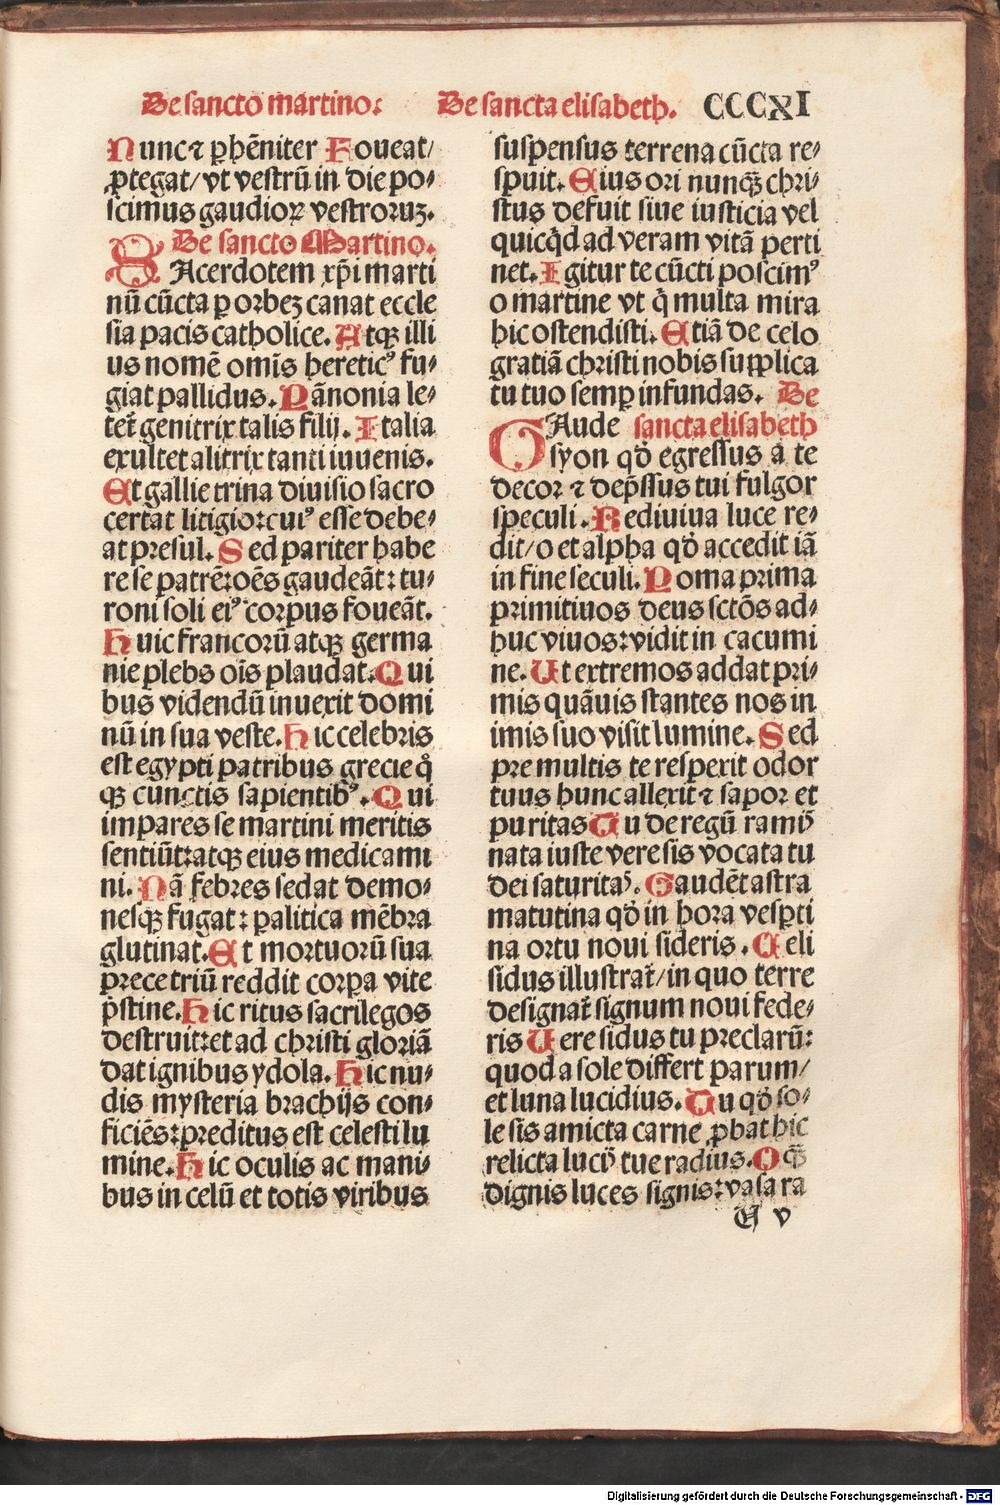 De sancto martino: De sancta elisabeth. CCCXI
Nunc ⁊ ꝑhēniter Foueat/
ꝓtegat/ vt vestrū in die po⸗
scimus gaudioꝝ vestroruꝫ.
De sancto Martino.
SAcerdotem xp̄i marti
nū cūcta ꝑ orbeꝫ canat eccle
sia pacis catholice. Atqꝫ illi
us nomē omīs hereticꝰ fu⸗
giat pallidus. Pānonia le⸗
tet̄ genitrix talis filij. Italia
exultet alitrix tanti iuuenis.
Et gallie trina diuisio sacro
certat litigio:cuiꝰ esse debe⸗
at presul. Sed pariter habe
re se patrē:oēs gaudeāt: tu⸗
roni soli eiꝰ corpus foueāt.
Huic francorū atqꝫ germa
nie plebs oīs plaudat. Qui
bus videndū inuexit domi
nū in sua veste. Hic celebris
est egypti patribus grecie q̊
qꝫ cunctis sapientibꝰ. Qui
impares se martini meritis
sentiūt:atqꝫ eius medicami
ni. Nā febres sedat demo⸗
nesqꝫ fugat: ꝑalitica mēbra
glutinat. Et mortuorū sua
prece triū reddit corꝑa vite
pͥstine. Hic ritus sacrilegos
destruit:et ad christi gloriā
dat ignibus ydola. Hic nu⸗
dis mysteria brachijs con⸗
ficiēs:preditus est celesti lu
mine. Hic oculis ac mani⸗
bus in celū et totis viribus
suspensus terrena cūcta re⸗
spuit. Eius ori nunqꝫ chri⸗
stus defuit siue iusticia vel
quicqͥd ad veram vitā perti
net. Igitur te cūcti poscimꝰ
o martine vt q̇ multa mira
hic ostendisti. Etiā de celo
gratiā christi nobis supplica
tu tuo semꝑ infundas. De
GAude sancta elisabeth
syon qd̓ egressus a te
decor ⁊ dep̄ssus tui fulgor
speculi. Rediuiua luce re⸗
dit/o et alpha qd̓ accedit iā
in fine seculi. Poma prima
primitiuos deus sctōs ad⸗
huc viuos:vidit in cacumi
ne. Ut extremos addat pri⸗
mis quāuis stantes nos in
imis suo visit lumine. Sed
pre multis te respexit odor
tuus hunc allexit ⁊ sapor et
puritas Tu de regū ramis
nata iuste vere sis vocata tu
dei saturitaꝭ. Gaudēt astra
matutina qd̓ in hora vesꝑti
na ortu noui sideris. Celi
sidus illustrat̄/in quo terre
designat̄ signum noui fede⸗
ris Uere sidus tu preclarū:
quod a sole differt parum/
et luna lucidius. Tu qd̓ so⸗
le sis amicta carne ꝓbat hic
relicta lucis tue radius. O qꝫ̄
dignis luces signis:vasa ra
E v
Digitalisierung gefördert durch die Deutsche Forschungsgemeinschaft - DFG